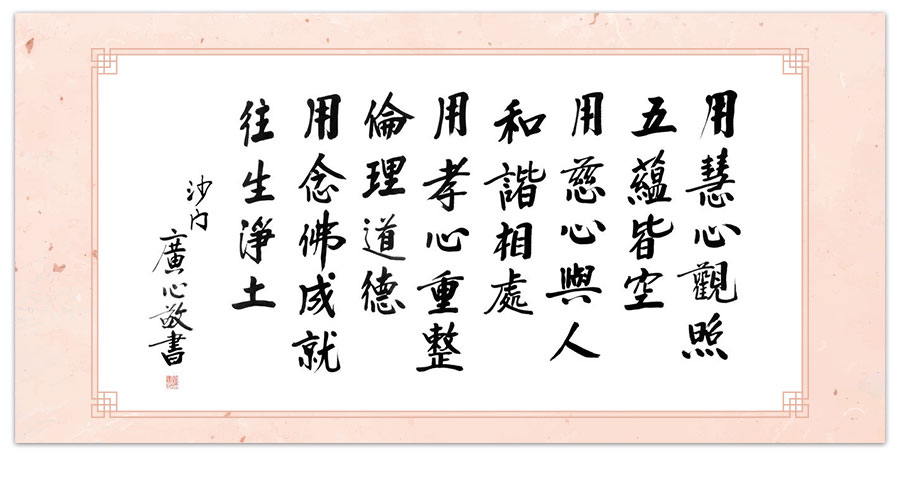 用慧心觀照
五蘊皆空
用慈心與人
和諧相處
用孝心重整
倫理道德
用念佛成就
往生淨土
沙门
廣心敬書